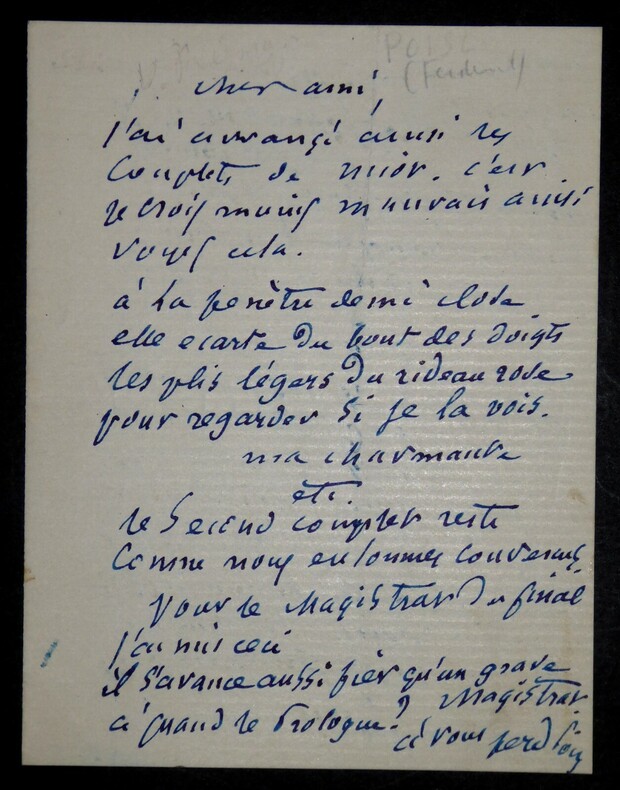 Poise
(Ferdinand)
cher ami,
j'ai arrangé ainsi les
Couplets de mior. c'est
je crois moins mauvais ainsi
voyez cela.
à la fenêtre demi close
elle ecarte du bout des doigts
les plis légers du rideau rose
pour regarder si je la vois.
ma charmante
etc.
le second couplet reste
comme nous en sommes convenus.
pour le Magistrat du final
j'ai mis ceci
il s'avance aussi fier qu'un grave
Magistrat
à quand le Prologue?
à vous